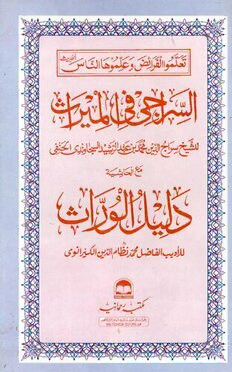 تعلموا الفرائض وعلموها الناس
السراجي في الميراث
للشيخ سراج الدين محمد بن عبد الرشيد السجاوندي الحنفي
مع الحاشية
دليل الوراث
للأديب الفاضل محمد نظام الدين الكيرانوي
مكتبہ رحمانیہ